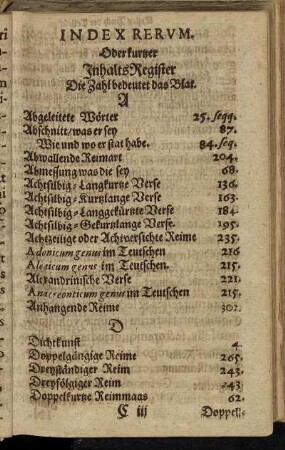 INDEX RERVM.
Oder kurtzer
Inhalts Register
Die Zahl bedeutet das Blat.
A
Abgeleitete Wörter 25. seqq.
Abschnitt/was er sey 87.
Wie und wo er stat habe. 84. seq.
Abwallende Reimart 204.
Abmessung was die sey 68.
Achtsilbig-Langkurtze Verse 136.
Achtsilbig-Kurtzlange Verse 163.
Achtsilbig-Langgekürtzte Verse 184.
Achtsilbig-Gekurtzlange Verse. 195.
Achtzeilige oder Achtversichte Reime 235.
Adonicum genus im Teutschen 216
Alcaicum genus im Teutschen. 215.
Alexandrinische Verse 221.
Anacreonticum genus im Teutschen 215.
Anhangende Reime 302.
D
Dichtkunst 4.
Doppelgängige Reime 265.
Dreyständiger Reim 243.
Dreyfölgiger Reim 243
Doppelkurtze Reimmaas 62.
C iij Doppel-